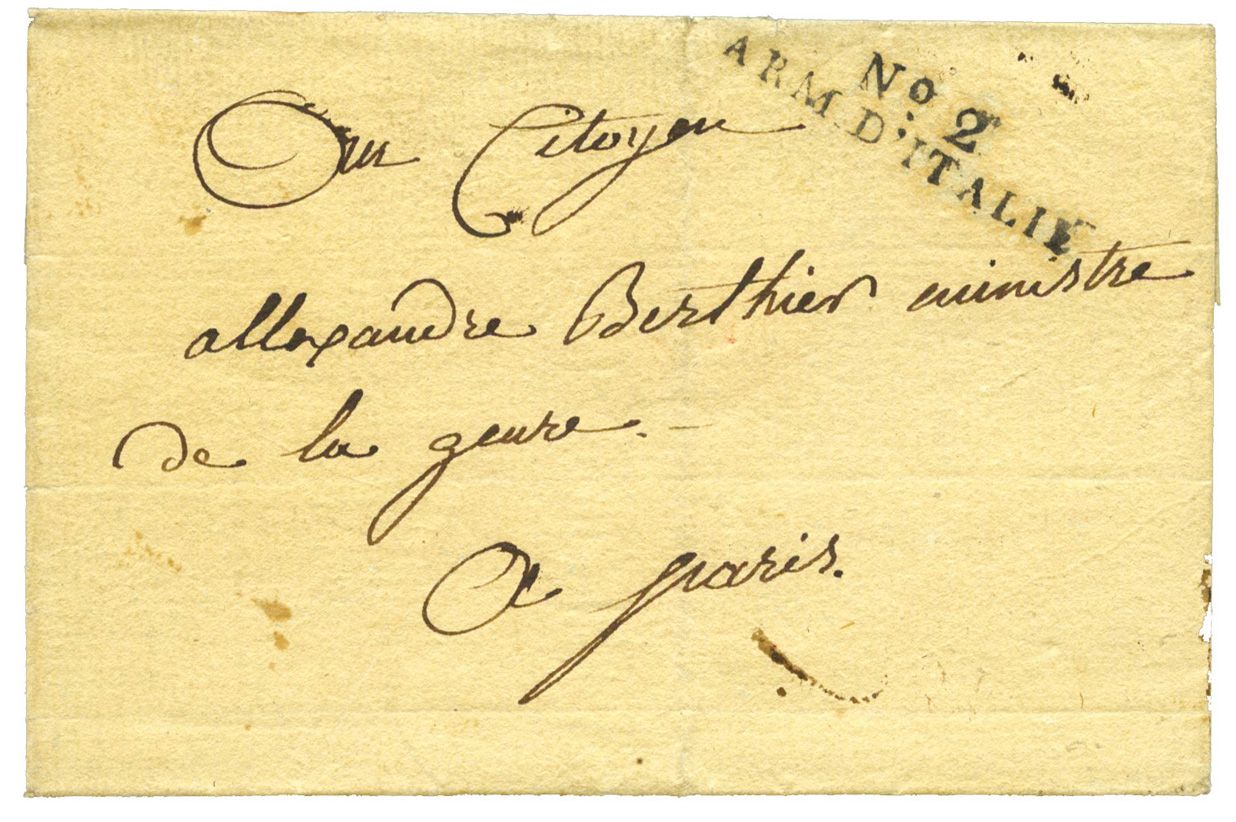 No. 2
ARM. D'ITALIE
Au Citoyen
allexandre Berthier ministre
de la geure. -
a paris.